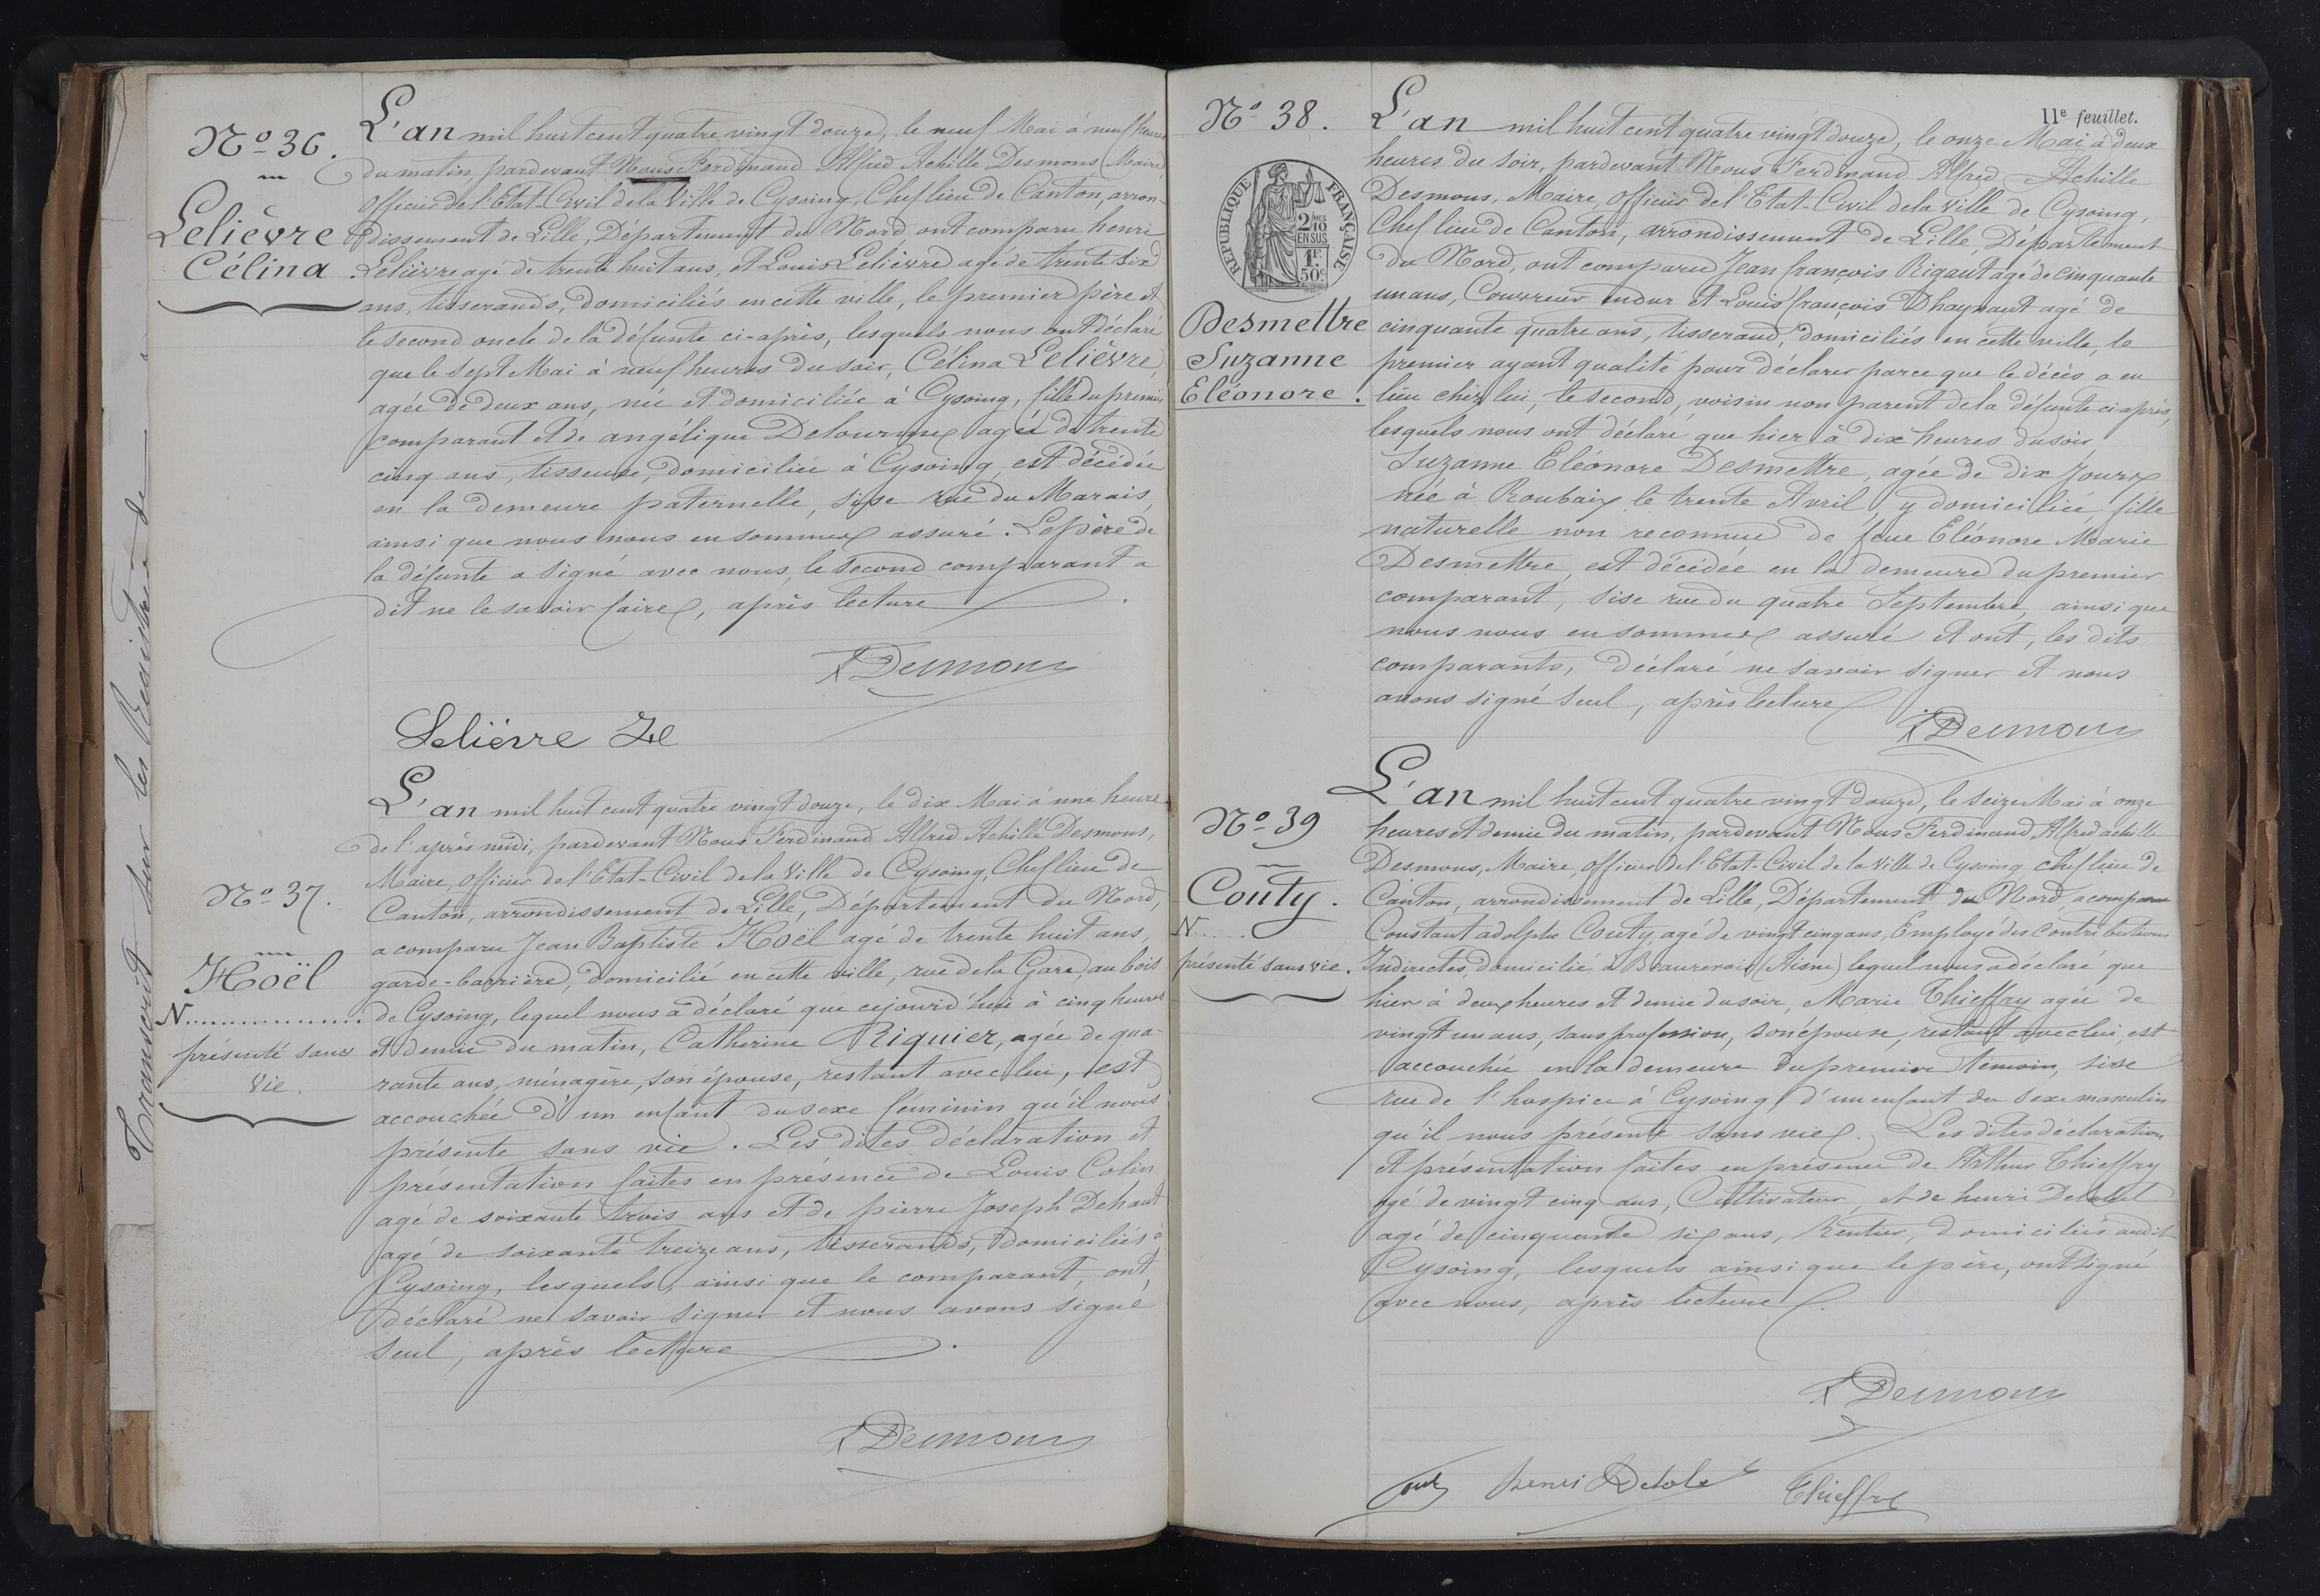 Transcrit sur les Registres de
Nº 36.
Lelièvre
Célina.
L'an mil huit cent quatre vingt douze, le neuf Mai à neuf heures
du matin, pardevant Nous Ferdinand Alfred Achille Desmons, Maire,
Officier de l'Etat-Civil de la Ville de Cysoing, Chef lieu de Canton, arron-
dissement de Lille, Département du Nord ont comparu henri
Lelièvre agé de trente huit ans, et Louis Lelièvre agé de trente six
ans, tisserands, domiciliés en cette ville, le premier père et
le second oncle de la défunte ci-après, lesquels nous ont déclaré
que le sept Mai à neuf heures du soir, Célina Lelièvre,
agée de deux ans, née et domiciliée à Cysoing, fille du premier
comparant et de angélique Delourme agée de trente
cinq ans, tisseuse, domiciliée à Cysoing est décédée
en la demeure paternelle, sise rue du Marais,
ainsi que nous nous en sommes assuré. Le père de
la défunte a signé avec nous, le second comparant a
dit ne le savoir faire, après lecture.
Desmons
Lelièvre
Nº 37.
Hoël
N................
présenté sans
vie.
L'an mil huit cent quatre vingt douze, le dix Mai à une heure
de l'après midi, pardevant Nous Ferdinand Alfred Achille Desmons,
Maire, Officier de l'Etat-Civil de la Ville de Cysoing, Chef lieu de
Canton, arrondissement de Lille, Département du Nord,
a comparu Jean Baptiste Hoël agé de trente huit ans,
garde-barrière, domicilié en cette ville, rue de la Gare, au bois
de Cysoing, lequel nous a déclaré que cejourd'hui à cinq heures
et demie du matin, Catherine Riquier, agée de qua-
rante ans, ménagère, son épouse, restant avec lui, est
accouchée d'un enfant du sexe féminin qu'il nous
présente sans vie. Les dites déclaration et
présentation faites en présence de Louis Colin
agé de soixante trois ans et de pierre Joseph Dehaut
agé de soixante treize ans, tisserands, domiciliés à
Cysoing, lesquels, ainsi que le comparant, ont
déclaré ne savoir signer et nous avons signé
seul, après lecture.
Desmons
11e feuillet.
Nº 38.
RÉPUBLIQUE FRANÇAISE
2/10 EN SUS
1F. 50c
Desmettre
Suzanne
Eléonore.
L'an mil huit cent quatre vingt douze, le onze Mai à deux
heures du soir, pardevant Nous Ferdinand Alfred Achille
Desmons, Maire, Officier de l'Etat-Civil de la ville de Cysoing,
Chef lieu de Canton, arrondissement de Lille, Département
du Nord, ont comparu Jean françois Rigaut agé de cinquante
un ans, Couvreur en dur et Louis françois Dhaynaut agé de
cinquante quatre ans, tisserand, domiciliés en cette ville, le
premier ayant qualité pour déclarer parce que le décès a eu
lieu chez lui, le second, voisin non parent de la défunte ci après,
lesquels nous ont déclaré que hier à dix heures du soir
Suzanne Eléonore Desmettre, agée de dix jours
née à Roubaix le trente Avril, y domiciliée, fille
naturelle non reconnue de feue Eléonore Marie
Desmettre, est décédée en la demeure du premier
comparant, sise rue du quatre Septembre, ainsi que
nous nous en sommes assuré et ont, les dits
comparants, déclaré ne savoir signer et nous
avons signé seul, après lecture
Desmons
Nº 39
Couty.
N....
présenté sans vie.
L'an mil huit cent quatre vingt douze, le seize Mai à onze
heures et demie du matin, pardevant Nous Ferdinand Alfred achille
Desmons, Maire, Officier de l'Etat-Civil de la Ville de Cysoing, Chef lieu de
Canton, arrondissement de Lille, Département du Nord a comparu
Constant adolphe Couty, agé de vingt cinq ans, Employé des Contributions
Indirectes, domicilié à Beaurevoir (Aisne) lequel nous a déclaré que
hier à deux heures et demie du soir, Marie Thieffry agée de
vingt un ans, sans profession, son épouse, restant avec lui, est
accouchée en la demeure du premier témoin, sise
rue de l'hospice à Cysoing, d'un enfant du sexe masculin
qu'il nous présente sans vie. Les dites déclaration
et présentation faites en présence de Arthur Thieffry
agé de vingt cinq ans, Cultivateur, et de henri
agé de cinquante six ans, Rentier, domiciliés audit
Cysoing, lesquels ainsi que le père, ont signé
avec nous, après lecture.
Desmons
Couty henri Thieffry